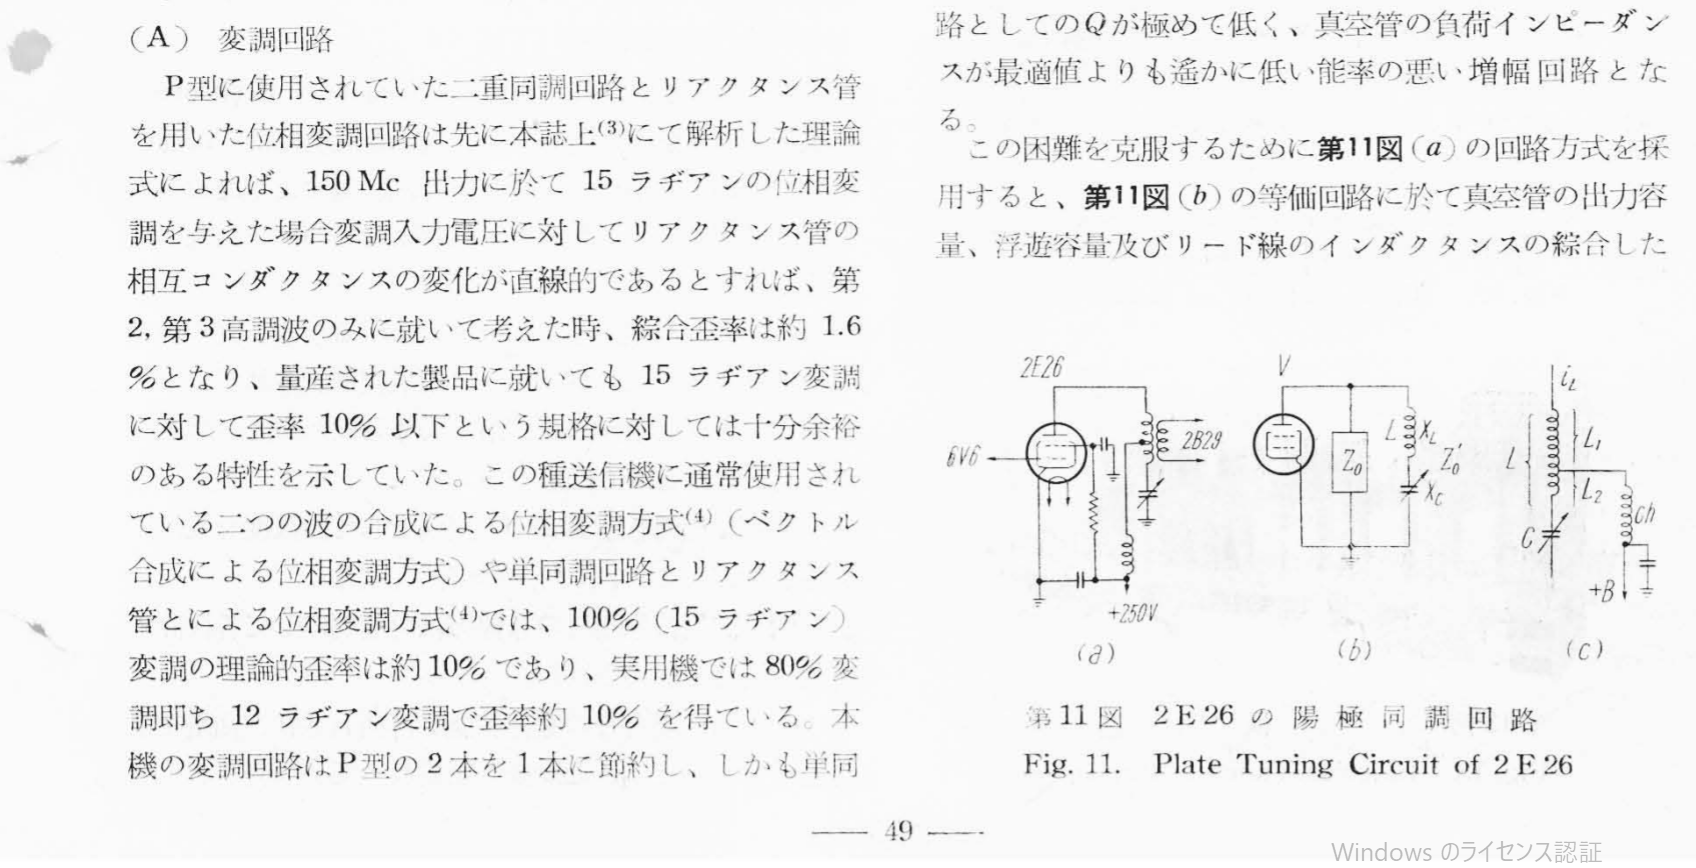 (A) 変調回路
P型に使用されていた二重同調回路とリアクタンス管
を用いた位相変調回路は先に本誌上(3)にて解析した理論
式によれば、150 Mc 出力に於て 15 ラヂアンの位相変
調を与えた場合変調入力電圧に対してリアクタンス管の
相互コンダクタンスの変化が直線的であるとすれば、第
2, 第3高調波のみに就いて考えた時、綜合歪率は約 1.6
%となり、量産された製品に就いても 15 ラヂアン変調
に対して歪率 10% 以下という規格に対しては十分余裕
のある特性を示していた。この種送信機に通常使用され
ている二つの波の合成による位相変調方式(4)（ベクトル
合成による位相変調方式）や単同調回路とリアクタンス
管とによる位相変調方式(4)では、100%（15 ラヂアン）
変調の理論的歪率は約10%であり、実用機では80%変
調即ち 12 ラヂアン変調で歪率約 10% を得ている。本
機の変調回路はP型の2本を1本に節約し、しかも単同
路としてのQが極めて低く、真空管の負荷インピーダン
スが最適値よりも遙かに低い能率の悪い増幅回路とな
る。
この困難を克服するために第11図(a)の回路方式を採
用すると、第11図(b)の等価回路に於て真空管の出力容
量、浮遊容量及びリード線のインダクタンスの綜合した
2E26
6V6
2B29
+250V
(a)
V
Z0
L
XL
Z0'
XC
(b)
iL
L
L1
L2
C
ch
+B
(c)
第11図 2E26の陽極同調回路
Fig. 11. Plate Tuning Circuit of 2E26
49
Windows のライセンス認証